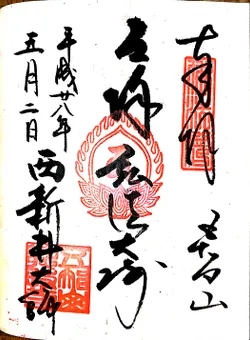 奉拝
五智山
厄除
弘法大師
平成廿八年
五月二日
西新井大師